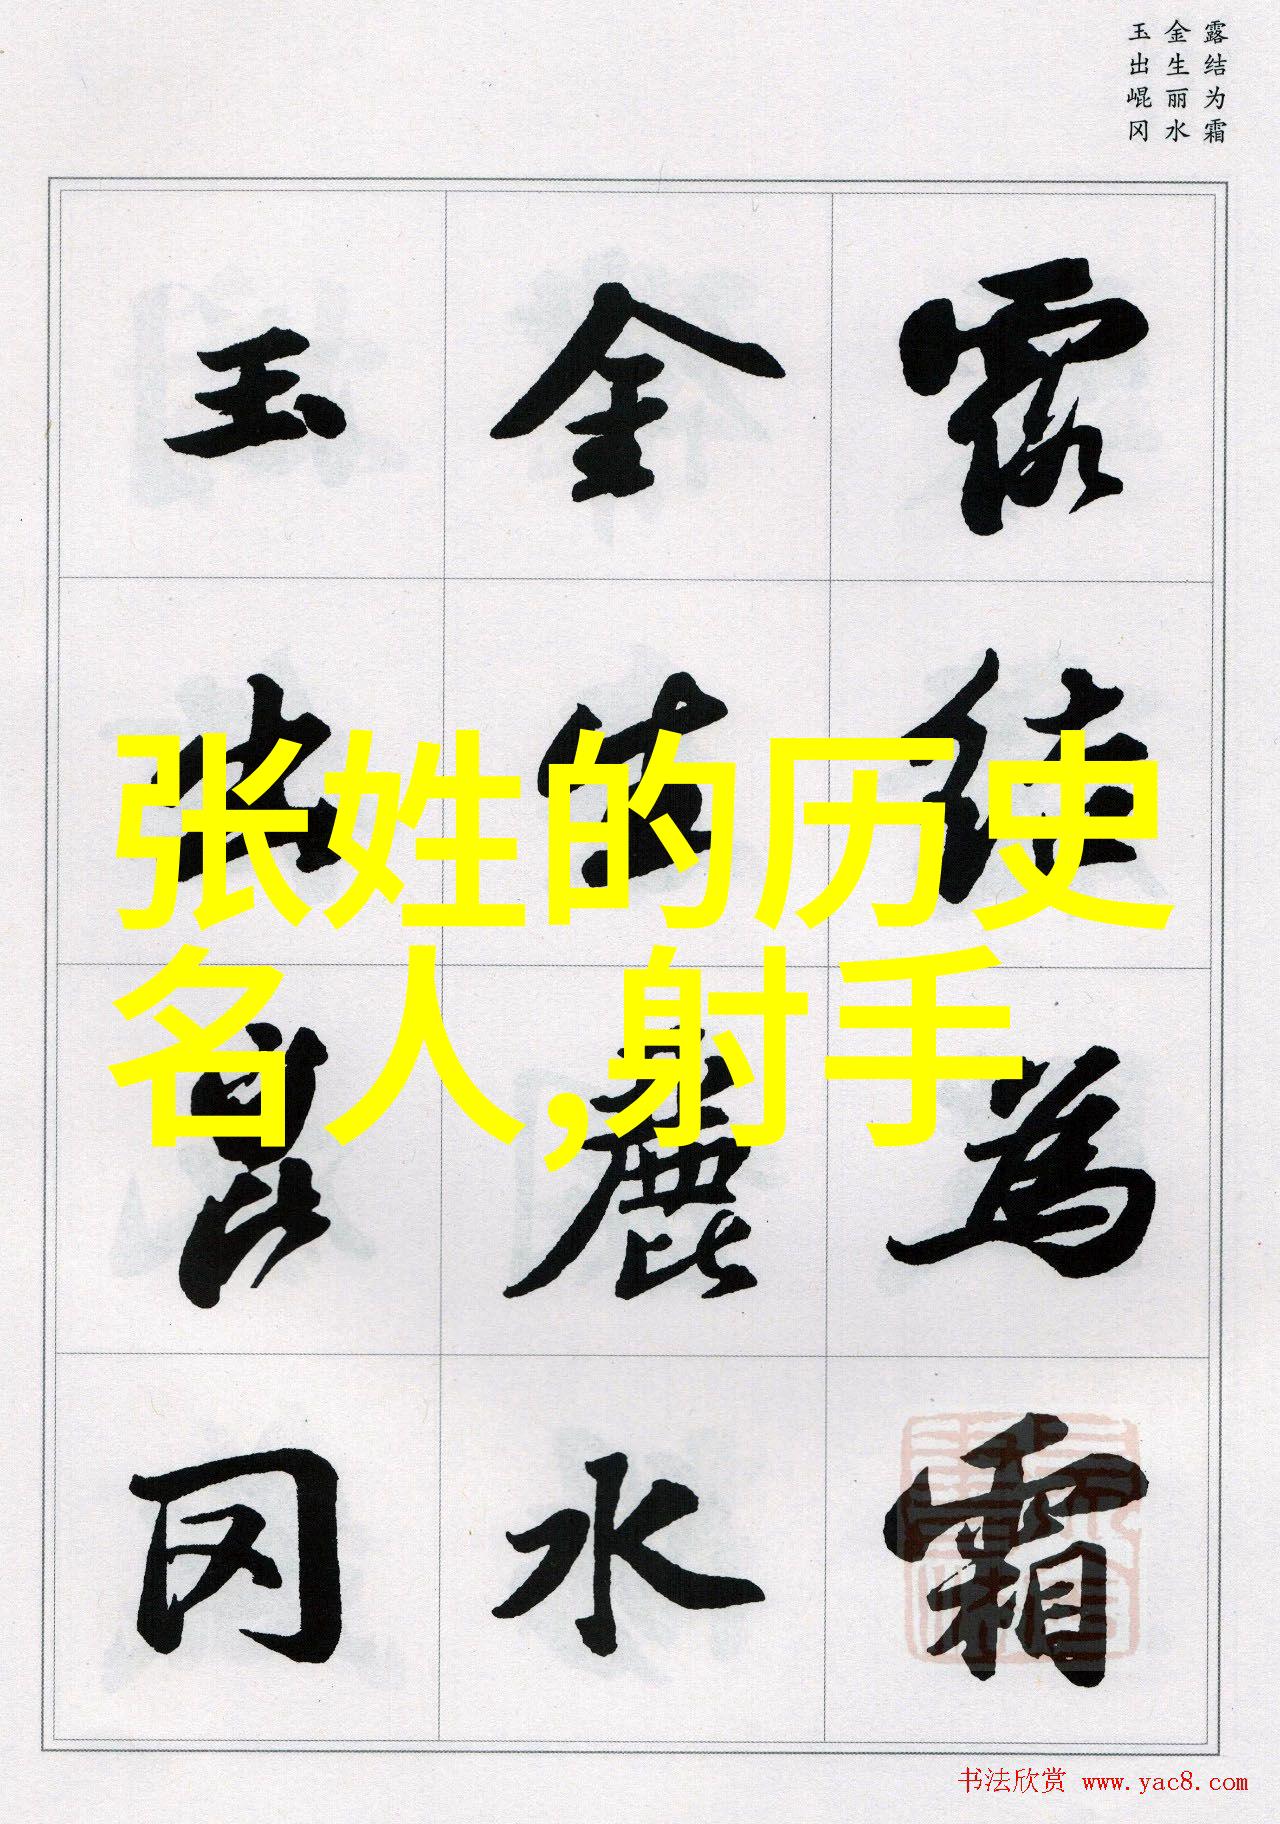 露结为霜
金生丽水
玉出崐冈
露结为霜
金生麗水
玉出崑冈
张姓的历史
名人,射手
书法欣赏 www.yac8.com